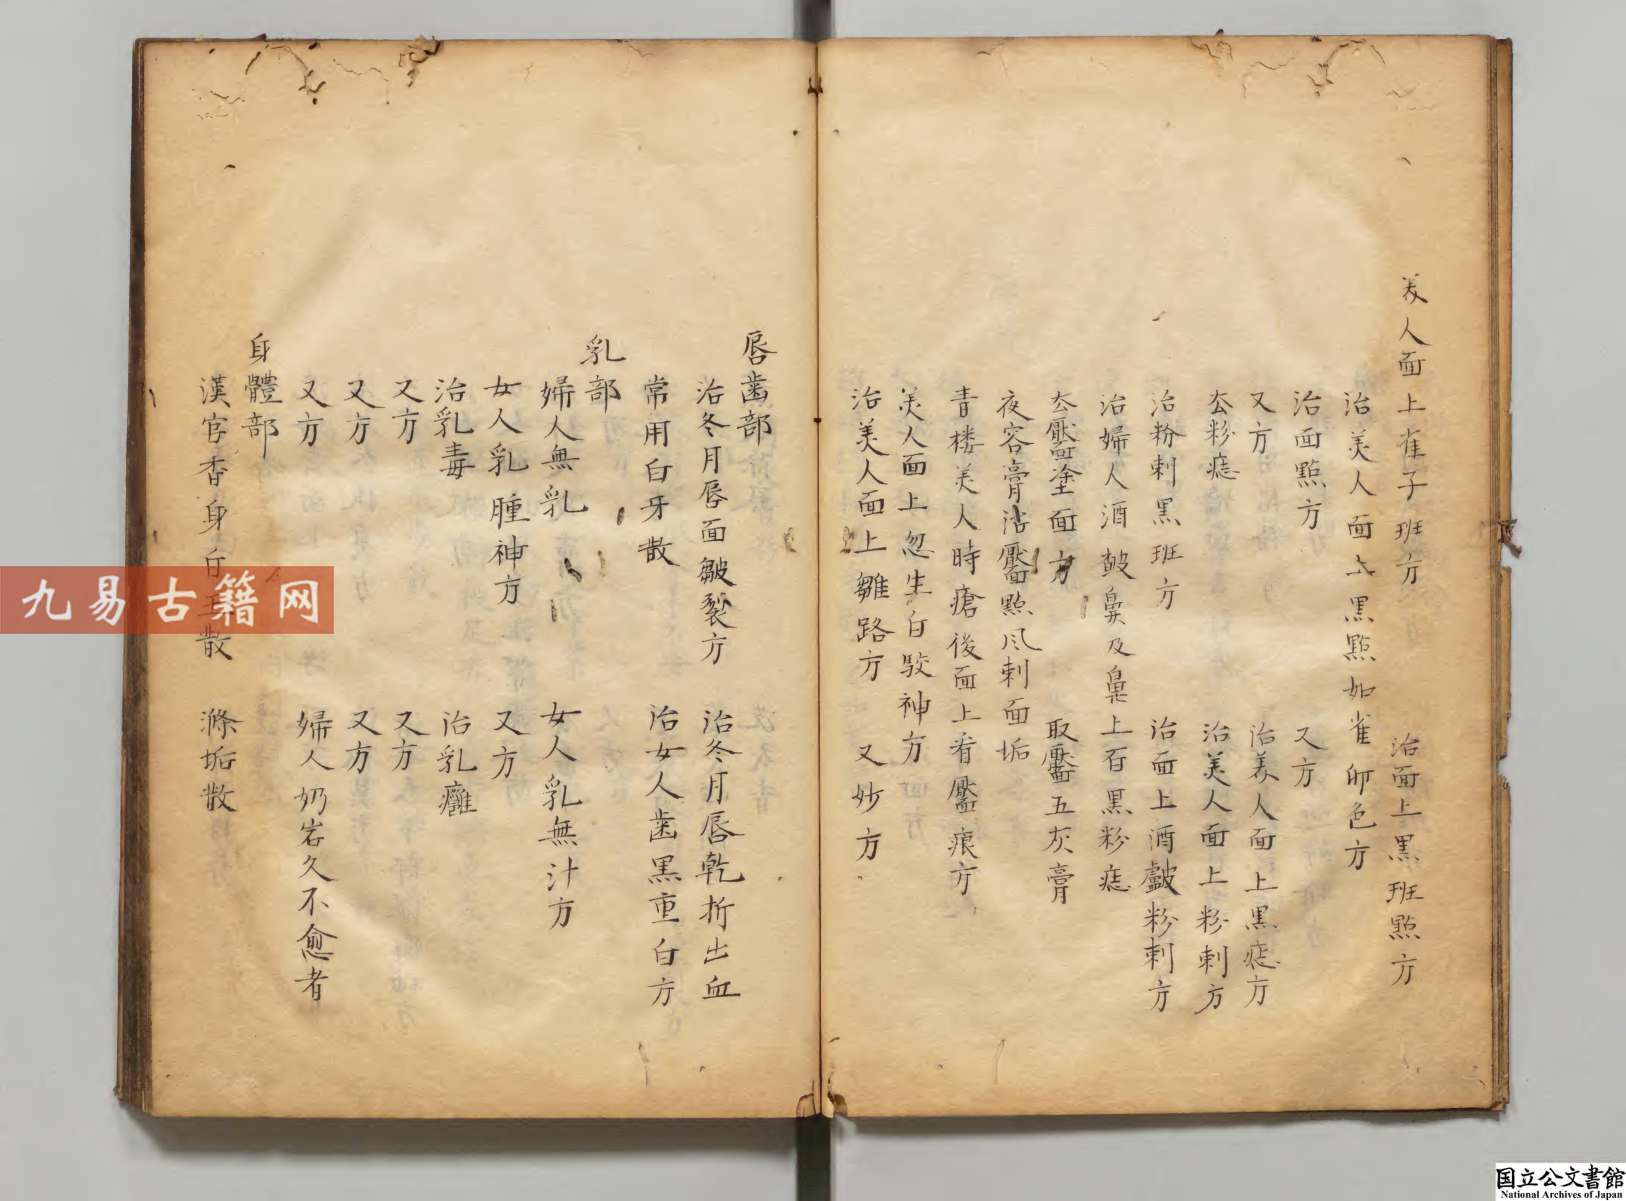 美人面上雀子班方
治面上黒班㸃方
治美人面上黒㸃如雀卵色方
治面㸃方
又方
又方
治美人面上黒痣方
去粉痣
治美人面上粉刺方
治粉刺黒班方
治面上酒皶粉刺方
治婦人酒皷鼻及鼻上百黒粉痣
去靨塗面方
取靨五灰膏
夜容膏治靨㸃风刺面垢
青楼美人時瘡後面上有靨痕方
美人面上忽生白駁神方
治美人面上雛路方
又妙方
唇齒部
治冬月唇面皺裂方
治冬月唇乾折出血
常用白牙散
治女人齒黒重白方
乳部
婦人無乳
女人乳無汁方
女人乳腫神方
又方
治乳毒
治乳癰
又方
又方
又方
又方
又方
婦人奶岩久不愈者
身體部
漢宫香身白玉散
滌垢散
九易古籍网
国立公文書館
National Archives of Japan